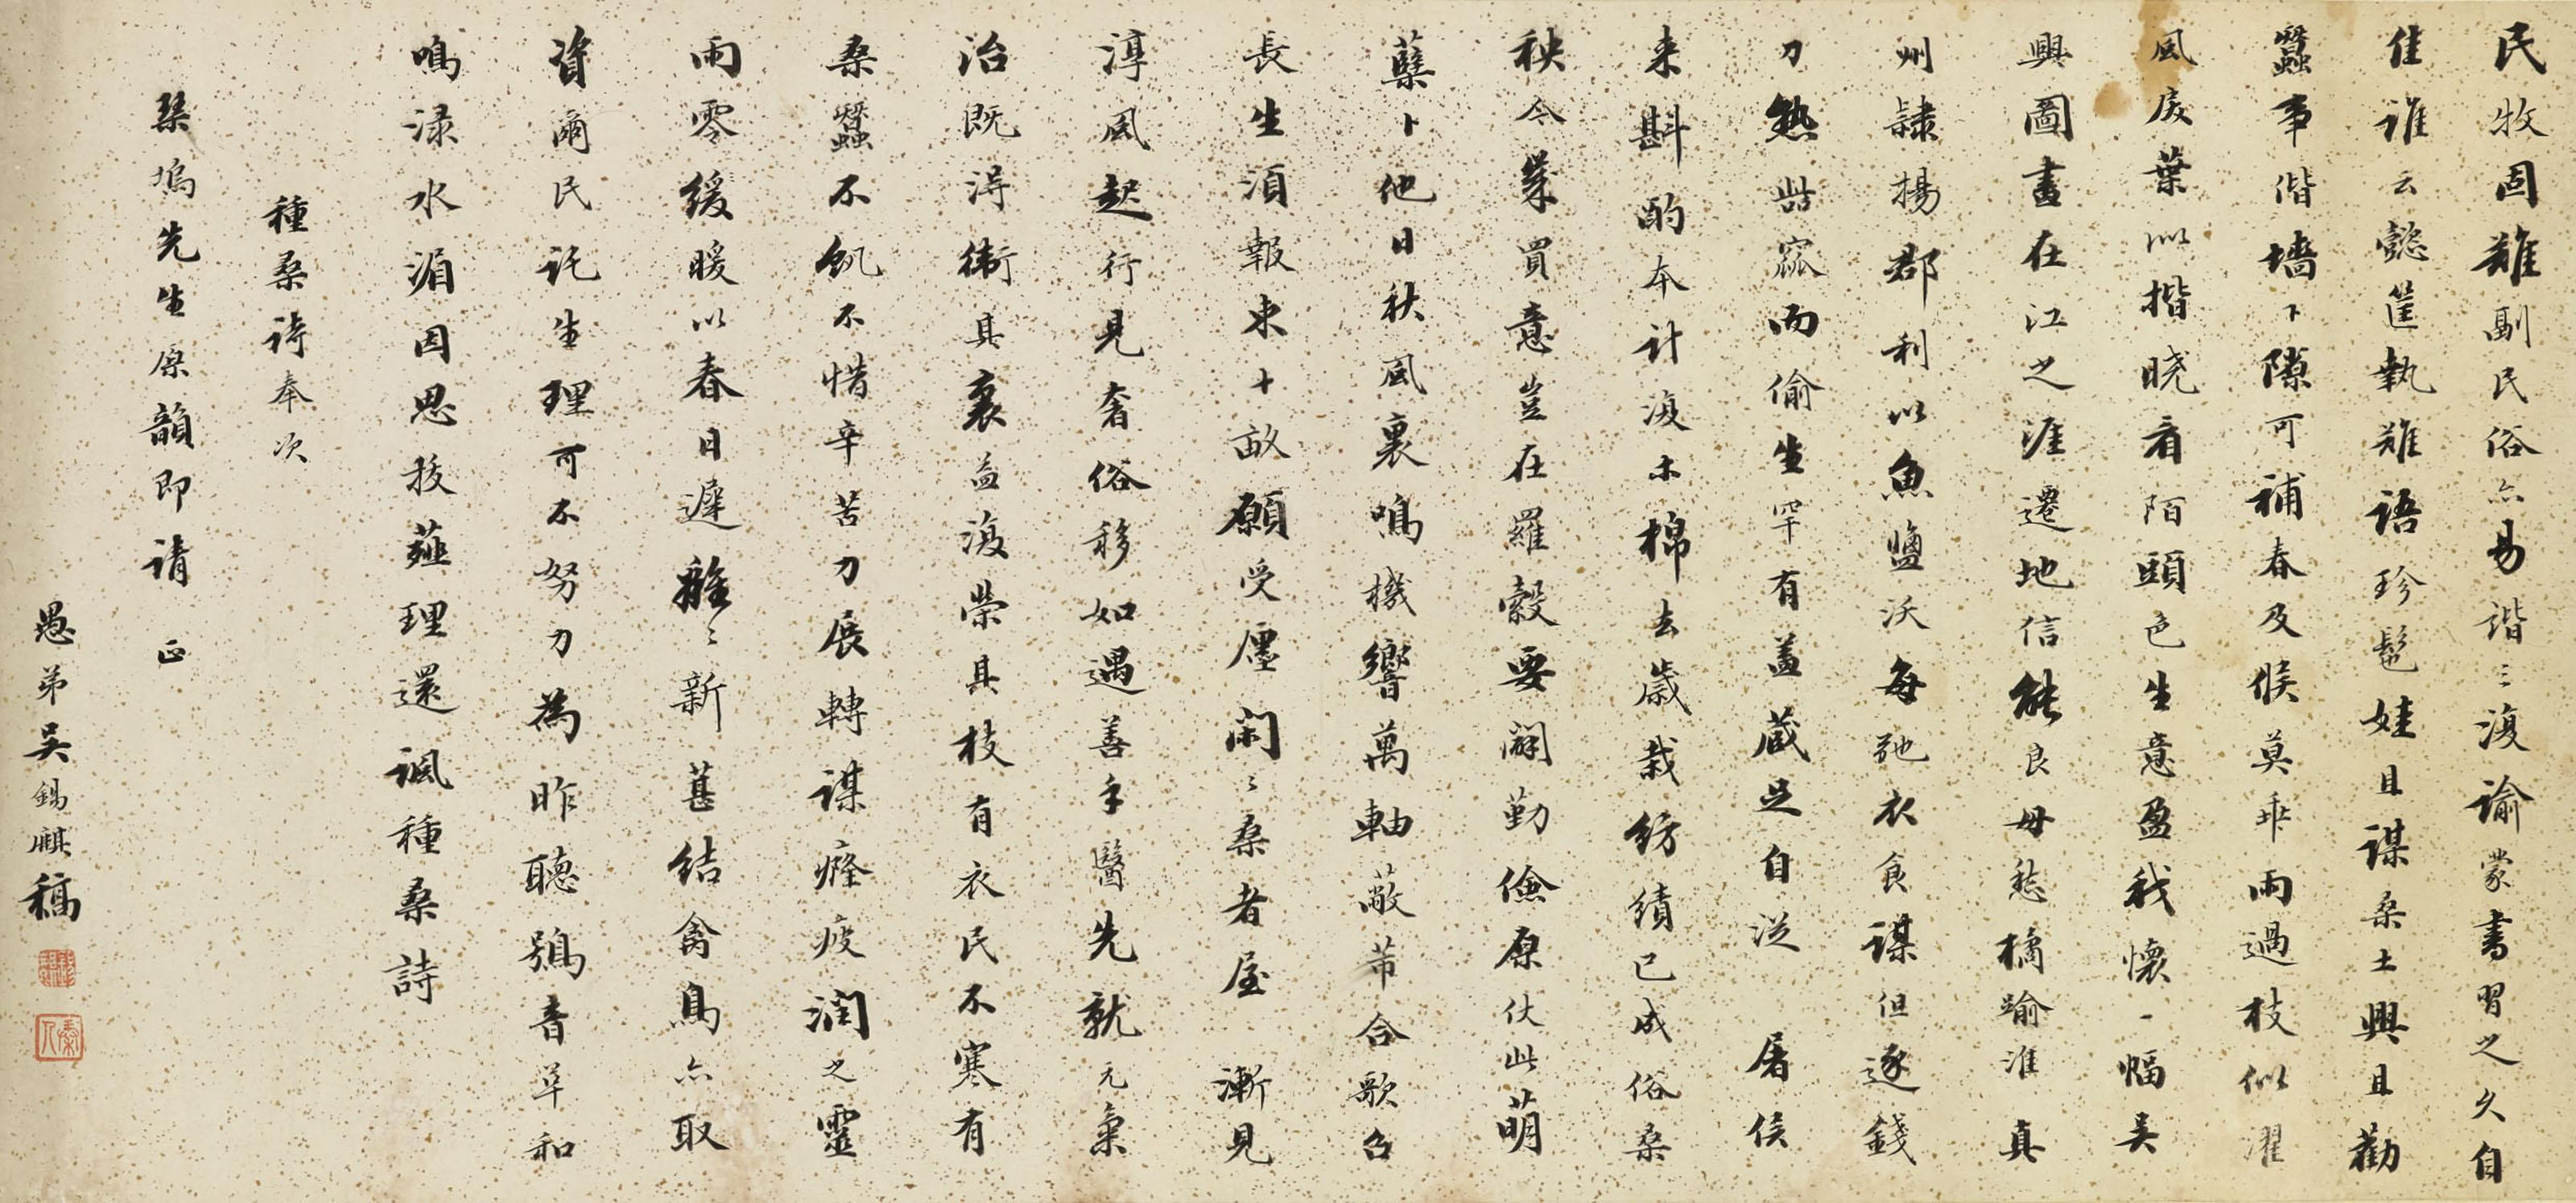 民牧固難副民俗亦易諧〻復諭蒙書習之久自
佳誰云懿筐執難語珍髢娃且謀桑土興且勸
蠶事偕墻下隙可補春及候莫乖雨過枝似濯
風戾葉似揩曉看陌頭色生意盈我懷一幅吴
興圖畫在江之涯遷地信能良毋愁橘踰淮真
州隷揚郡利以魚鹽沃每弛衣食謀但逐錢
刀熱呰窳而偷生罕有蓋藏足自從屠侯
来斟酌本計復木棉去歲栽紡績已成俗桑
秧今業買意豈在羅縠要闢勤儉原仗此萌
蘖卜他日秋風裏鳴機響萬軸蔽芾合歌召
長生須報束十畝願受廛閑〻桑者屋漸見
淳風起行見奢俗移如遇善手醫先就元氣
治既得衛其裏益復榮其枝有衣民不寒有
桑蠶不飢不惜辛苦力展轉謀癃疲潤之靈
雨零緩暖以春日遲離〻新葚結禽鳥亦取
資爾民託生理可不努力為昨聽鴞音革和
鳴淥水湄因思拔薤理還諷種桑詩
種桑詩奉次
琹塢先生原韻即請 正
愚弟吴錫麒稿